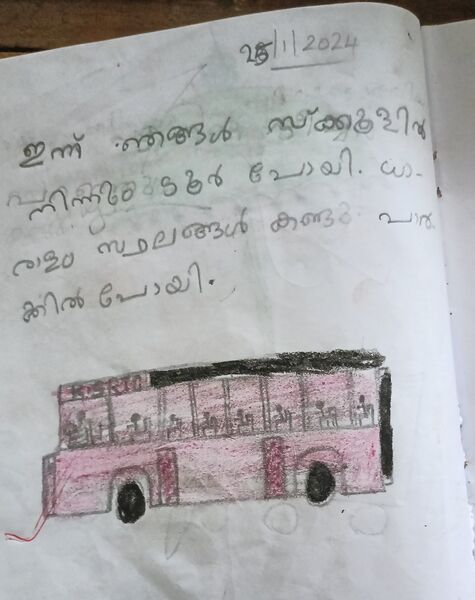 25/1/2024
ഇന്ന് ഞങ്ങൾ സ്ക്കൂളിൽ
നിന്നും ടൂർ പോയി. ധാ-
രാളം സ്ഥലങ്ങൾ കണ്ടു പാർ
ക്കിൽ പോയി.